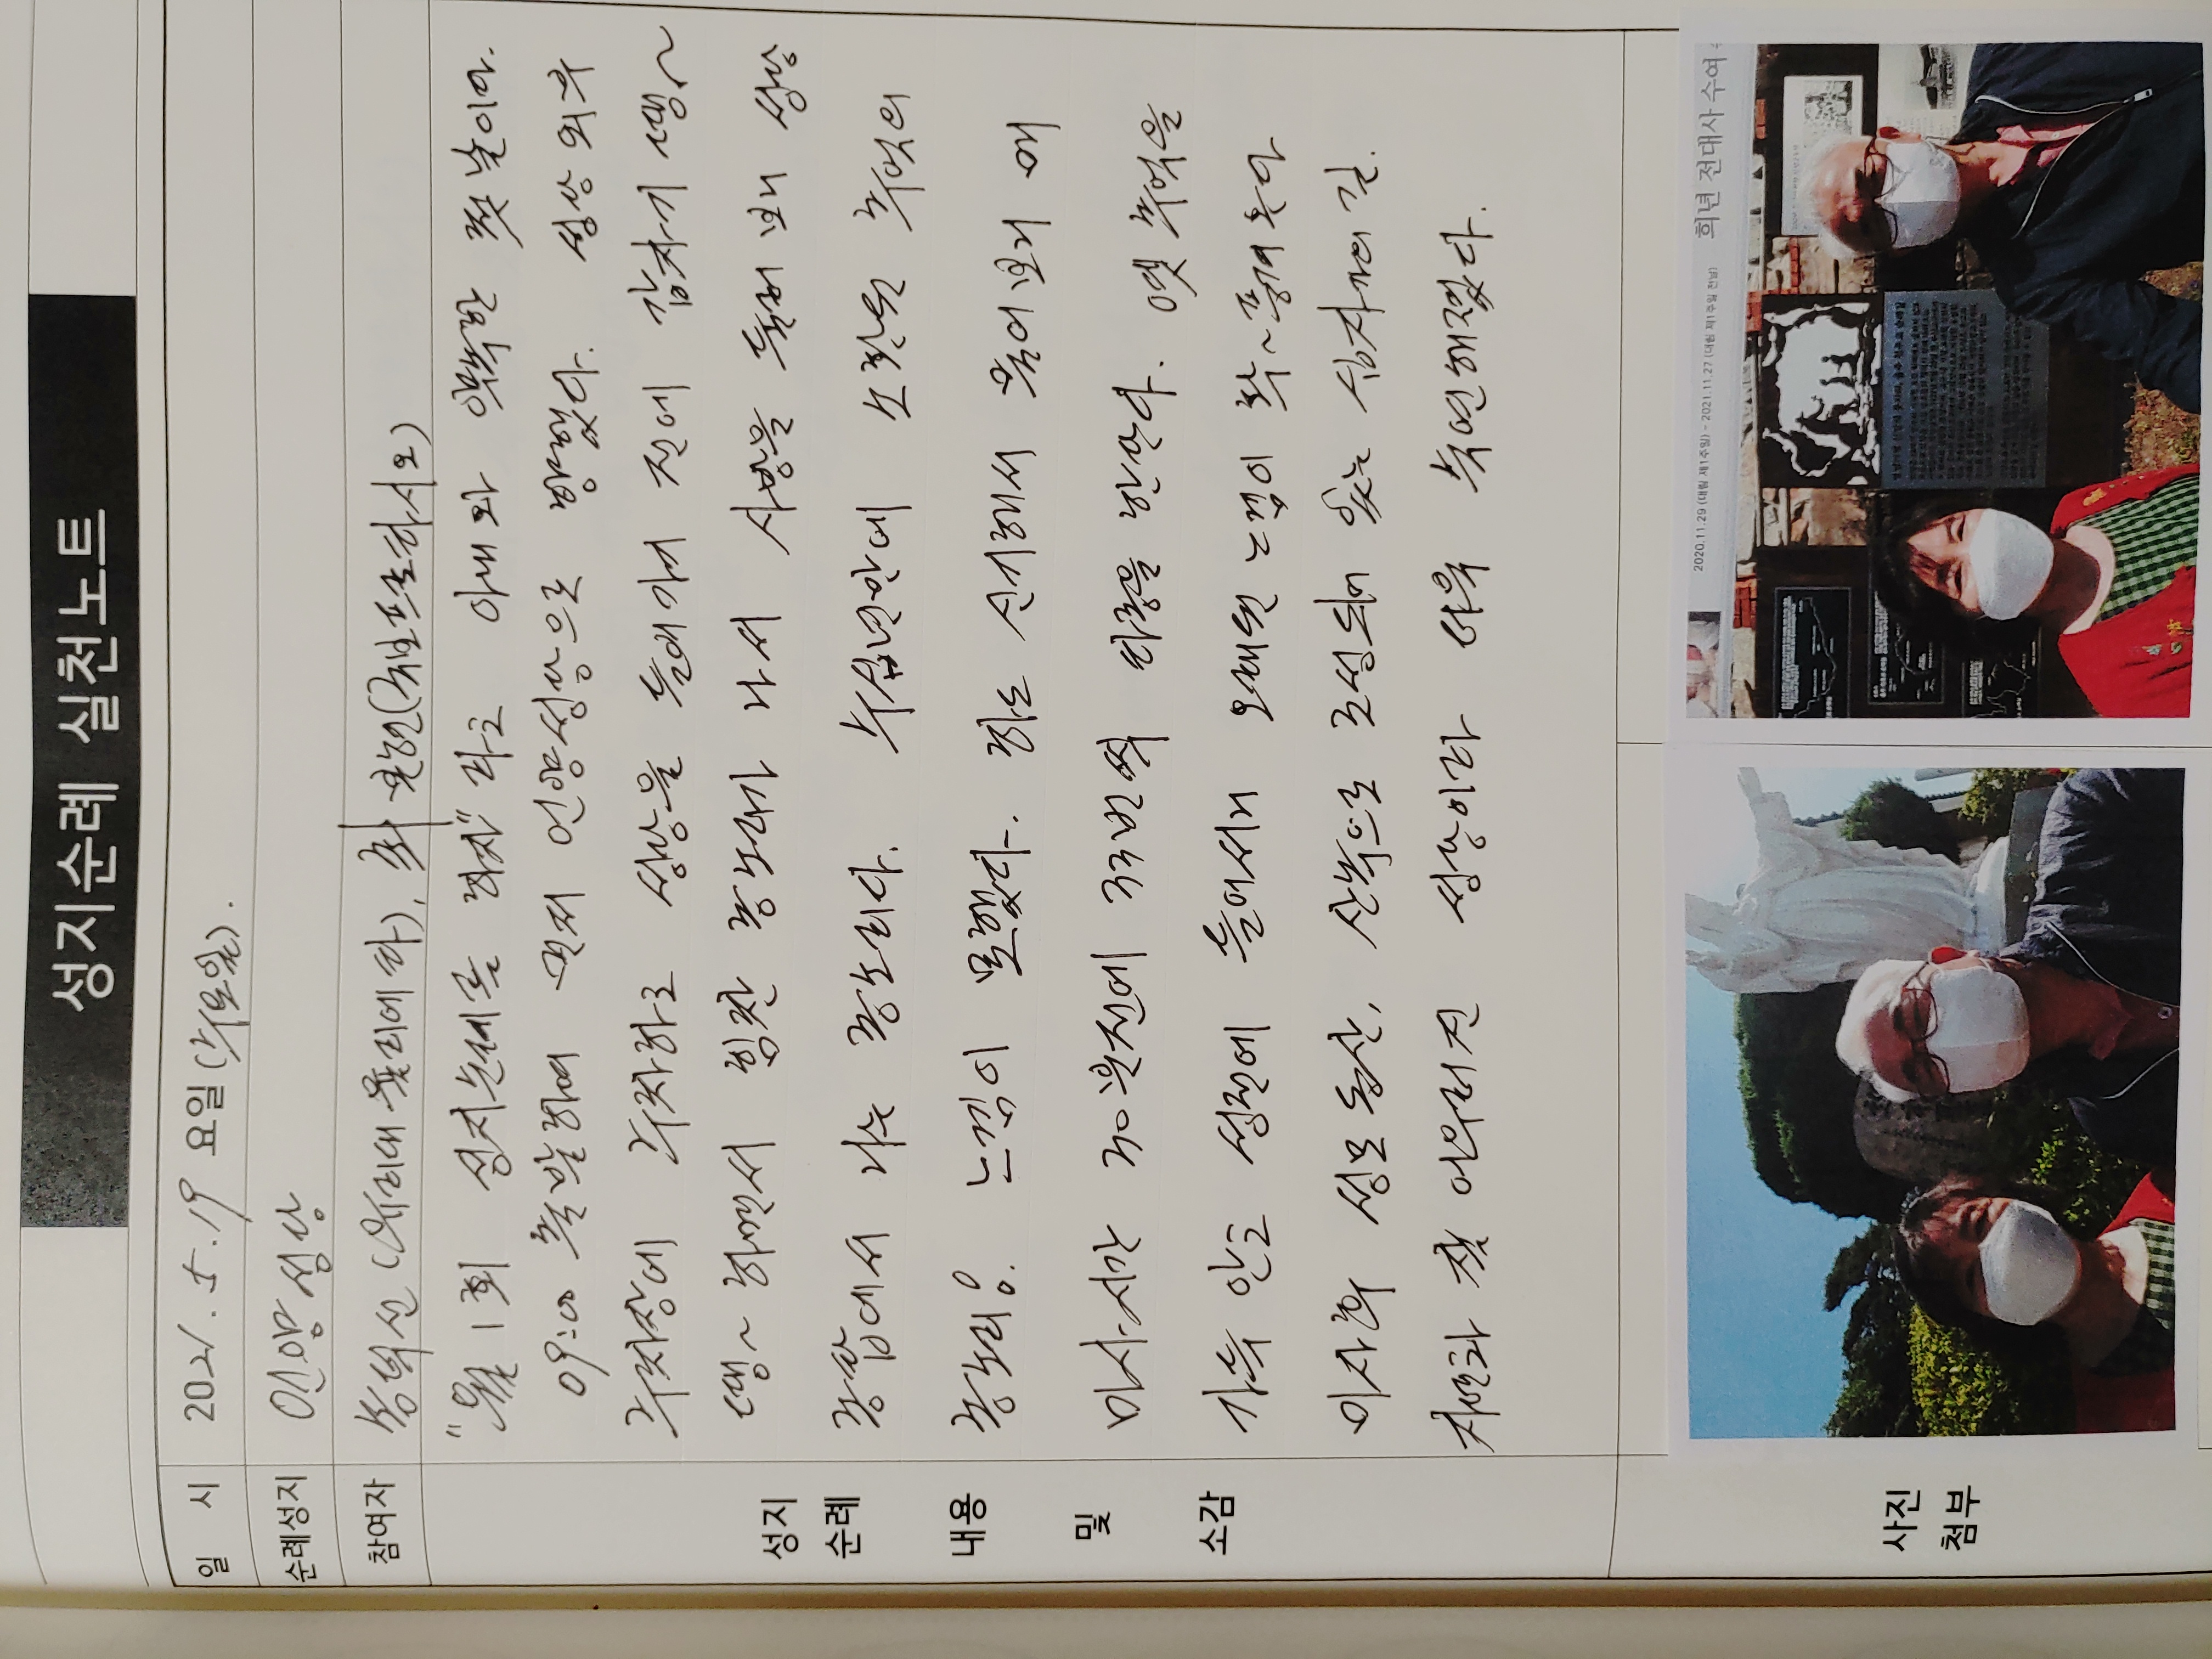 성지순례 실천노트
일 시 2021. 5. 19 요일 (수요일).
순례성지 언양성당
참여자 송덕선 (유리대 율리에타), 최 (국보프로타시오)
"월 1회 성지순례를 하자" 라고 아내와 약속한 첫날이다.
09:00 출발하여 먼저 언양성당으로 향했다. 성당 외부
주차장에 주차하고 성당을 들어가기 전에 갑자기 땡~
땡~ 하면서 힘찬 종소리가 나서 사방을 둘러보니 성당
종탑에서 나는 종소리다. 수십년만에 소환된 추억의
종소리! 느낌이 묘했다. 하도 신기해서 물어보니 매
미사시간 30분전에 33번씩 타종을 한단다. 옛 추억을
가득 안고 성전에 들어서니 오래된 느낌이 확~ 풍겨온다
미사후 성모동산, 산속으로 조성되어 있는 십자가의 길.
자연과 잘 어우러진 성당이라 더욱 숙연해졌다.
성지
순례
내용
및
소감
사진
첨부
2020.11.29 (대림 제1주일) - 2021.11.27 (대림 제1주일 전날) 희년 전대사 수여